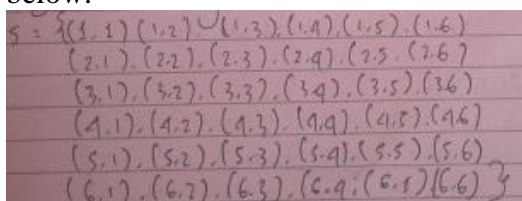 below:
S = {(1,1) (1,2) (1.3), (1.4), (1.5). (1.6
(2.1). (2.2). (2.3). (2.4). (2.5. (2.6)
(3.1), (3.2). (3.3). (3.4). (3.5). (3.6)
(4.1). (4.2). (4.3). (4.4). (4.5). (4.6)
(5.1). (5.2). (5.3). (5.4). (5.5). (5.6)
(6.1). (6.2). (6.3). (6.4. (6.5) (6.6) }